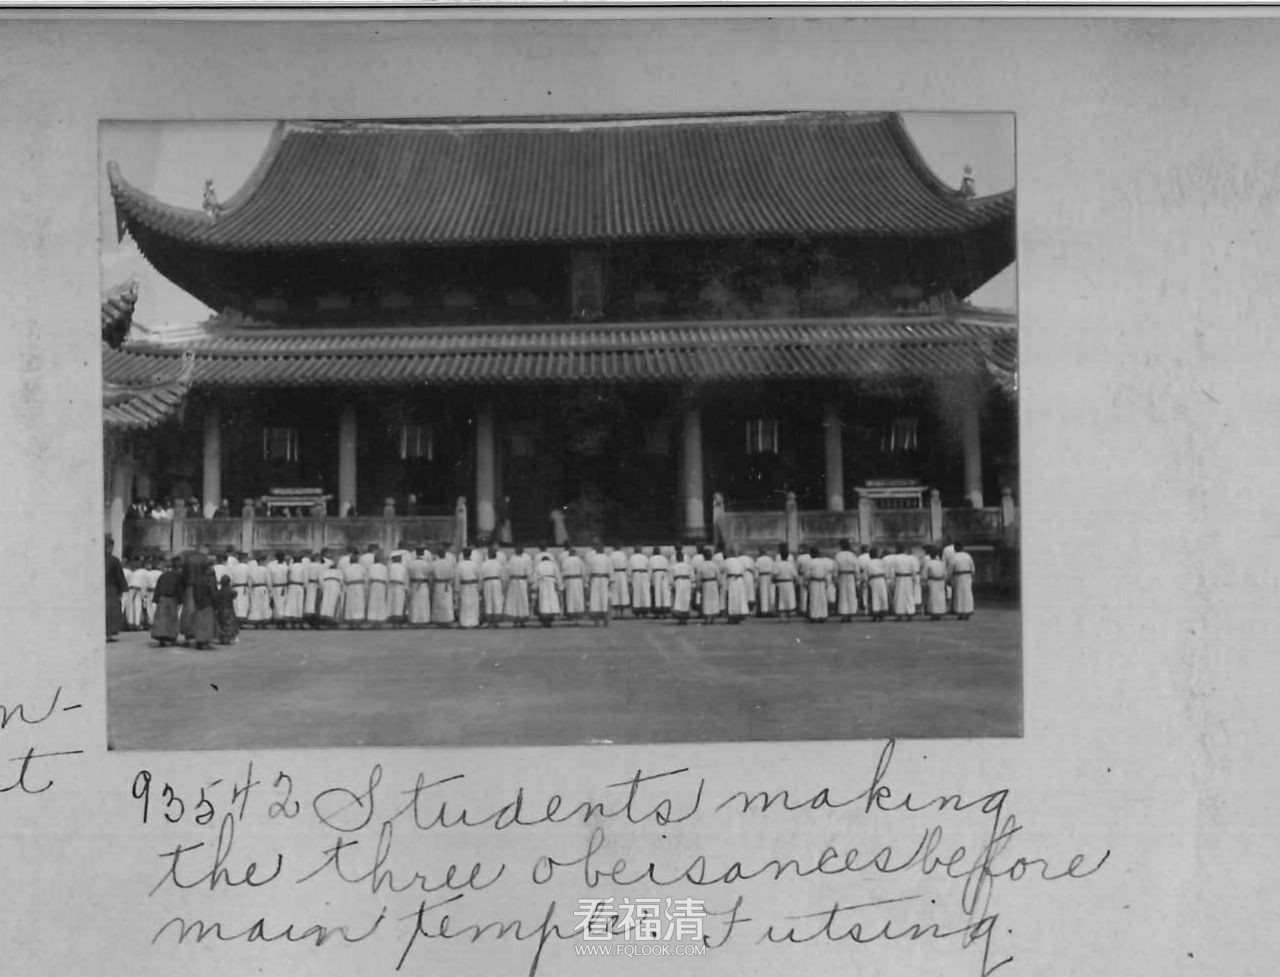 n-
t
93542 Students making
the three obeisances before
main temple. Futsing.
看福清
WWW.FQLOOK.COM